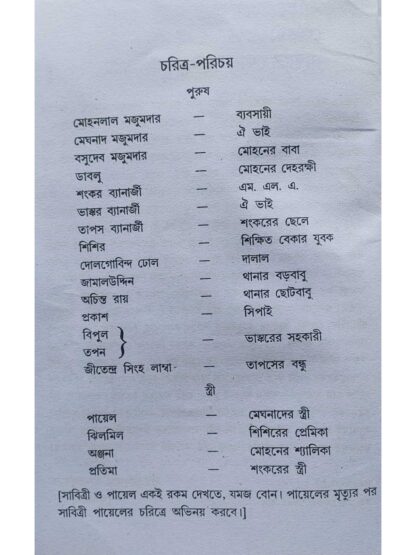 চরিত্র-পরিচয়
পুরুষ
মোহনলাল মজুমদার — ব্যবসায়ী
মেঘনাদ মজুমদার — ঐ ভাই
বসুদেব মজুমদার — মোহনের বাবা
ডাবলু — মোহনের দেহরক্ষী
শংকর ব্যানার্জী — এম. এল. এ.
ভাস্কর ব্যানার্জী — ঐ ভাই
তাপস ব্যানার্জী — শংকরের ছেলে
শিশির — শিক্ষিত বেকার যুবক
দোলগোবিন্দ ঢোল — দালাল
জামালউদ্দিন — থানার বড়বাবু
অচিন্ত রায় — থানার ছোটবাবু
প্রকাশ — সিপাই
বিপুল
তপন } — ভাস্করের সহকারী
জীতেন্দ্র সিংহ লাম্বা - — তাপসের বন্ধু
স্ত্রী
পায়েল — মেঘনাদের স্ত্রী
ঝিলমিল — শিশিরের প্রেমিকা
অঞ্জনা — মোহনের শ্যালিকা
প্রতিমা — শংকরের স্ত্রী
[সাবিত্রী ও পায়েল একই রকম দেখতে, যমজ বোন। পায়েলের মৃত্যুর পর
সাবিত্রী পায়েলের চরিত্রে অভিনয় করবে।]